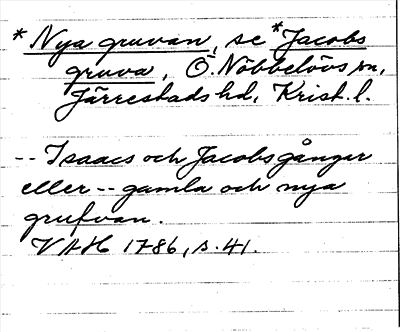 *Nya gruvan, se *Jacobs
gruva, Ö. Nöbbelövs sn,
Järrestads hd, Krist. l.
-- Isaacs och Jacobs gånger
eller -- gamla och nya
grufvan.
VAH 1786, s. 41.